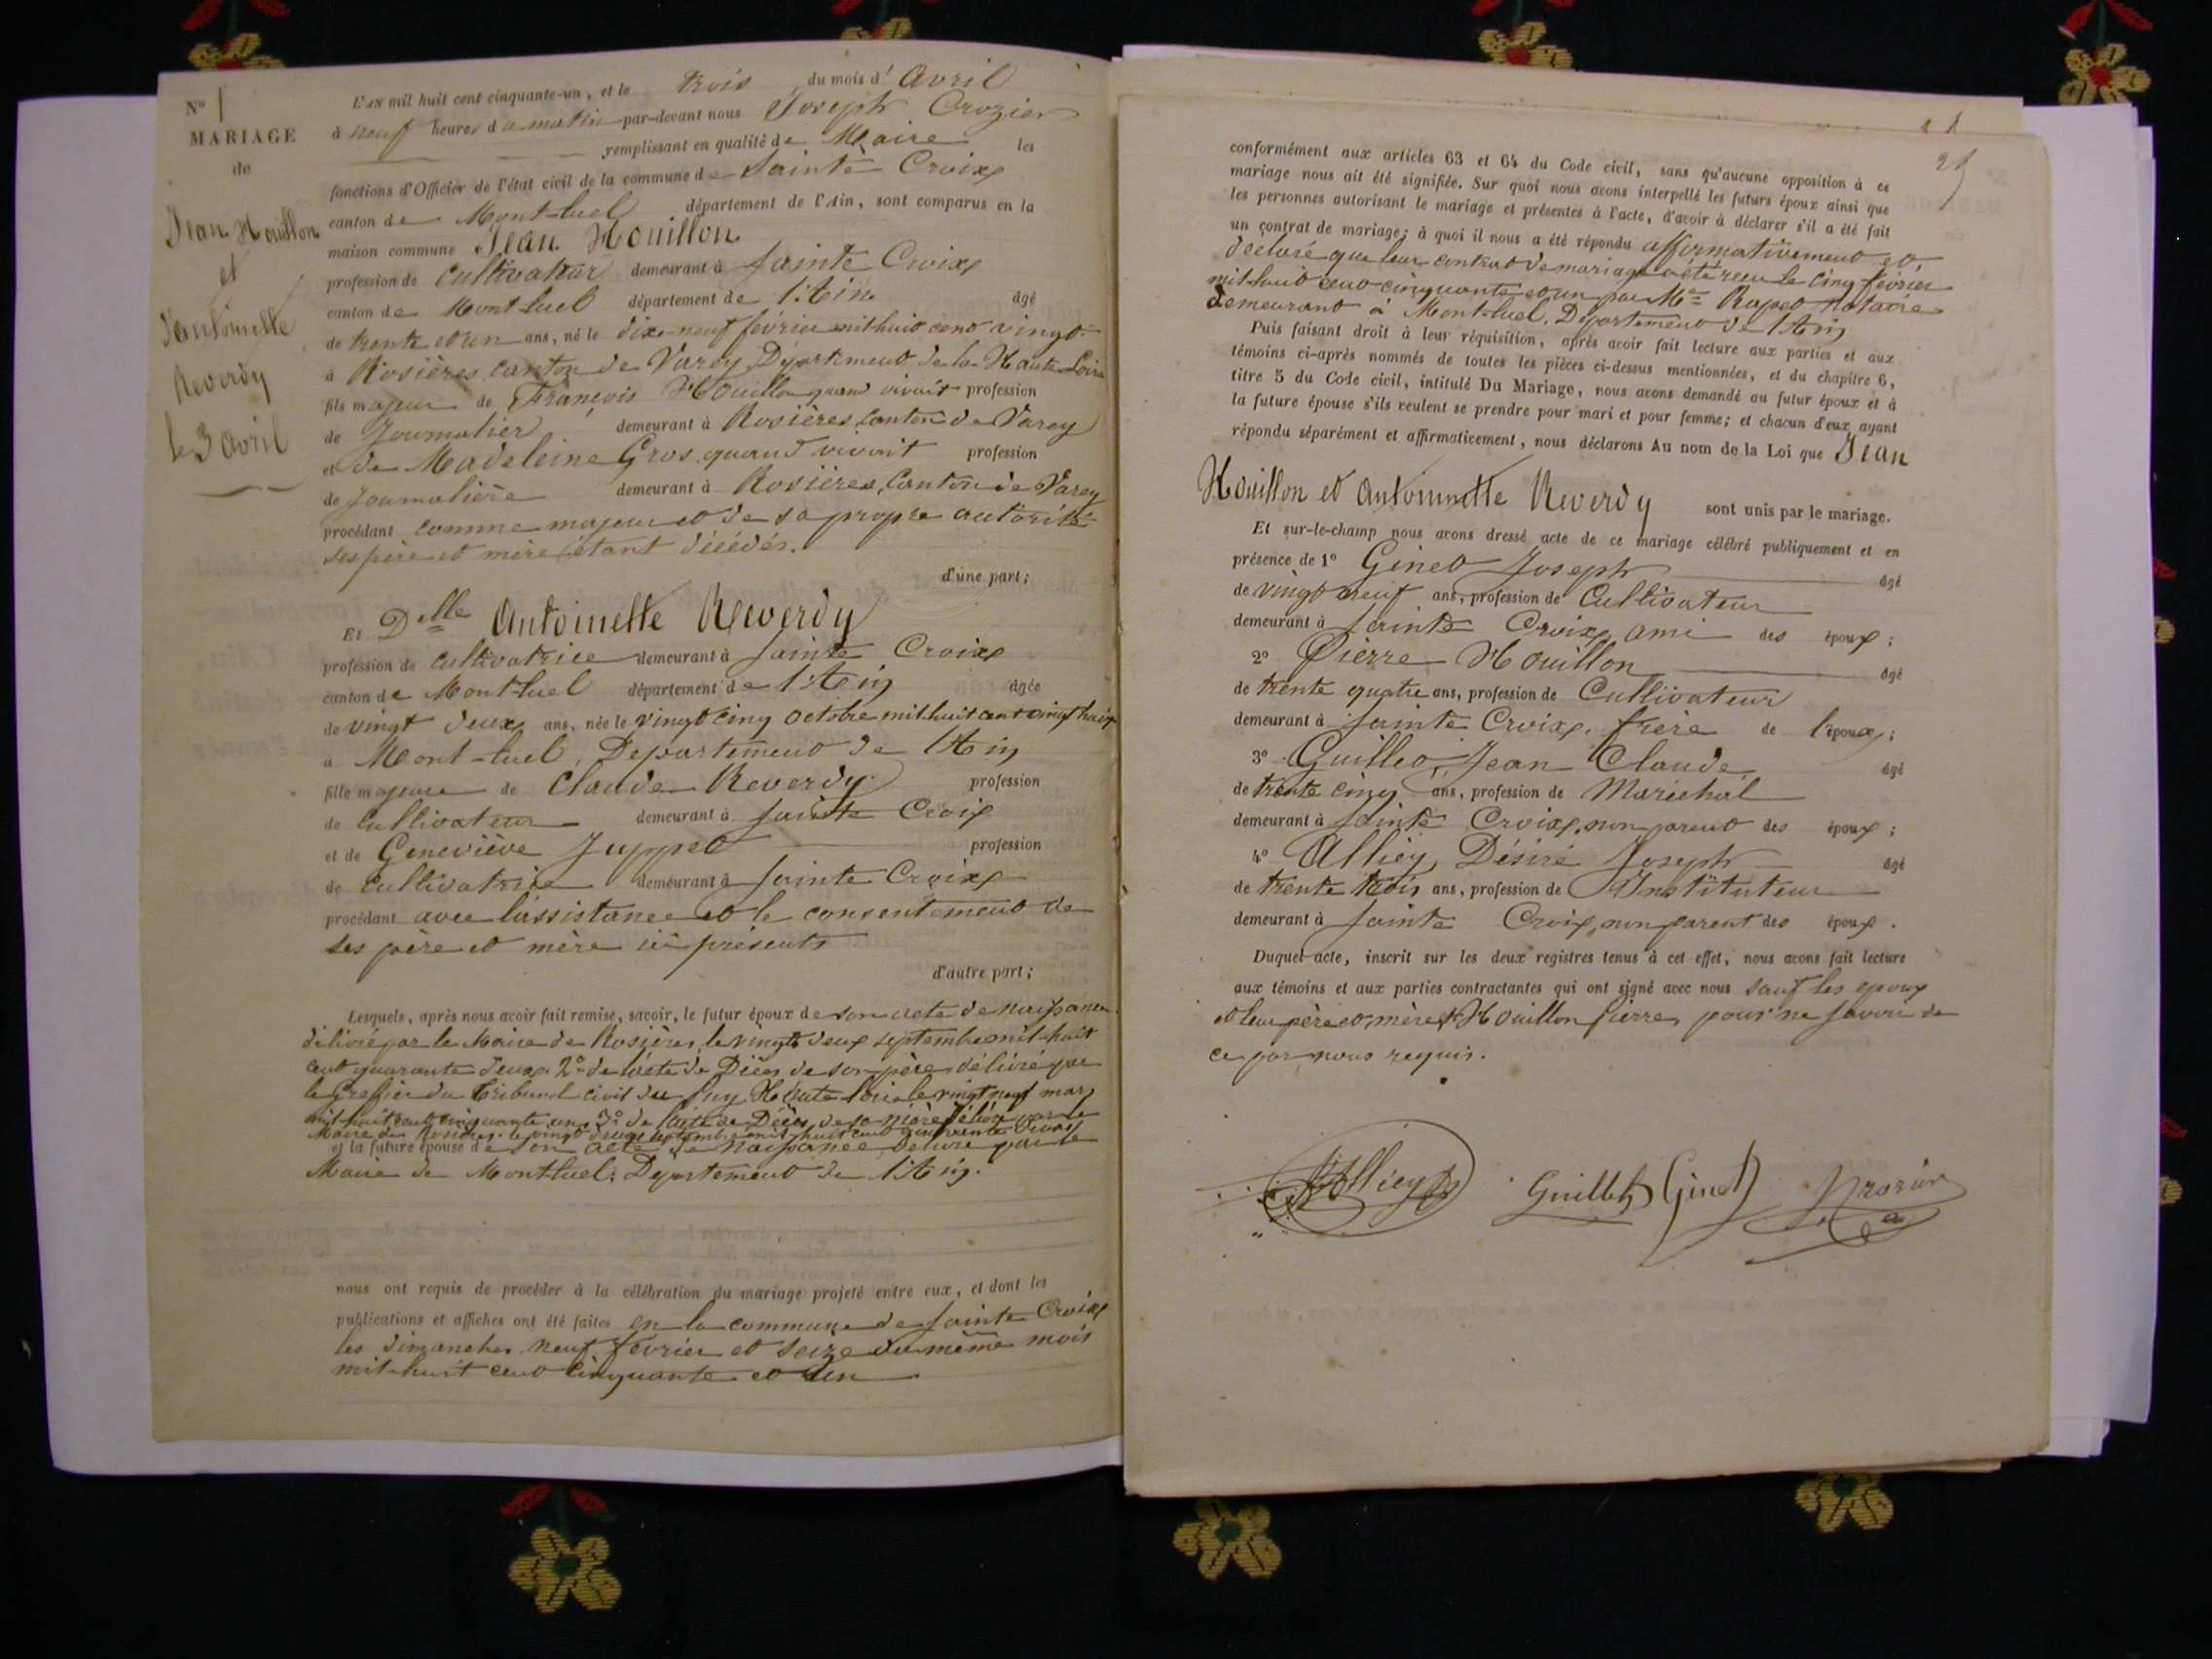 N° 1
MARIAGE
de
Jean Houillon
et
d'antoinette
Reverdy
le 3 avril
L'AN mil huit cent cinquante-un, et le trois du mois d'Avril
à neuf heures du matin par-devant nous Joseph Crozier
remplissant en qualité de Maire les
fonctions d'Officier de l'état civil de la commune de Sainte Croix
canton de Mont-luel département de l'Ain, sont comparus en la
maison commune Jean Houillon
profession de cultivateur demeurant à Sainte Croix
canton de Mont-luel département de l'Ain âgé
de trente et un ans, né le dix-neuf février mil huit cent vingt
à Rosières canton de Varey Département de la Haute Loire
fils majeur de François Houillon quand vivait profession
de Journalier demeurant à Rosières, Canton de Varey
et de Madeleine Gros quand vivait profession
de Journalière demeurant à Rosières, Canton de Varey
procédant comme majeur et de sa propre autorité
ses père et mère étant décédés.
d'une part;
Et Delle Antoinette Reverdy
profession de cultivatrice demeurant à Sainte Croix
canton de Mont-luel département de l'Ain âgée
de vingt deux ans, née le vingt cinq octobre mil huit cent vingt huit
à Mont-luel, Departement de l'Ain
fille majeure de Claude Reverdy profession
de Cultivateur demeurant à Sainte Croix
et de Geneviève Juppet profession
de Cultivatrice demeurant à Sainte Croix
procédant avec l'assistance et le consentement de
ses père et mère ici présents
d'autre part;
Lesquels, après nous avoir fait remise, savoir, le futur époux de son acte de naissance
délivré par le Maire de Rosières, le vingt deux septembre mil huit
cent quarante deux. 2° de l'acte de Décès de son père délivré par
le Greffier du Tribunal civil du Puy Haute Loire le vingt neuf mars
mil huit cent cinquante un. 3° de l'acte de Décès de sa mère délivré par le
Maire de Rosières le vingt deux septembre mil huit cent quarante deux
et la future épouse de son acte de naissance délivré par le
Maire de Montluel, Departement de l'Ain.
nous ont requis de procéder à la célébration du mariage projeté entre eux, et dont les
publications et affiches ont été faites en la commune de Sainte Croix
les dimanches neuf février et seize du même mois
mil huit cent cinquante et un
conformément aux articles 63 et 64 du Code civil, sans qu'aucune opposition à ce
mariage nous ait été signifiée. Sur quoi nous avons interpellé les futurs époux ainsi que
les personnes autorisant le mariage et présentes à l'acte, d'avoir à déclarer s'il a été fait
un contrat de mariage; à quoi il nous a été répondu affirmativement et
declaré que leur contrat de mariage a été reçu le cinq février
mil huit cent cinquante et un par Me Rapet Notaire
demeurant à Mont-luel, Departement de l'Ain
Puis faisant droit à leur réquisition, après avoir fait lecture aux parties et aux
témoins ci-après nommés de toutes les pièces ci-dessus mentionnées, et du chapitre 6,
titre 5 du Code civil, intitulé Du Mariage, nous avons demandé au futur époux et à
la future épouse s'ils veulent se prendre pour mari et pour femme; et chacun d'eux ayant
répondu séparément et affirmativement, nous déclarons Au nom de la Loi que Jean
Houillon et Antoinette Reverdy sont unis par le mariage.
Et sur-le-champ nous avons dressé acte de ce mariage célébré publiquement et en
présence de 1° Ginet Joseph âgé
de vingt neuf ans, profession de Cultivateur
demeurant à Sainte Croix ami des époux;
2° Pierre Houillon âgé
de trente quatre ans, profession de Cultivateur
demeurant à Sainte Croix, frère de l'époux;
3° Guillet Jean Claude âgé
de trente cinq ans, profession de Maréchal
demeurant à Sainte Croix, non parent des époux;
4° Alliey Désiré Joseph âgé
de trente trois ans, profession de Instituteur
demeurant à Sainte Croix, non parent des époux.
Duquel acte, inscrit sur les deux registres tenus à cet effet, nous avons fait lecture
aux témoins et aux parties contractantes qui ont signé avec nous sauf les époux
et leur père et mère et Houillon Pierre, pour ne savoir de
ce par nous requis.
Alliey Guillet Ginet Crozier